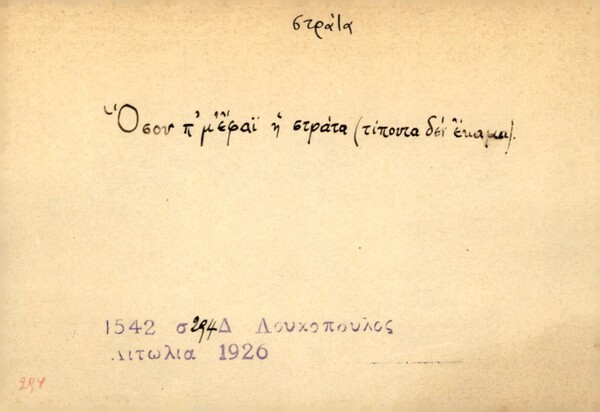 στράτα
Ὅσου π' μ' ἔφαϊ ἡ στράτα (τίποντα δέν ἔκαμα).
1542 σ 294 Δ Λουκοπουλος
Αιτωλια 1926
294